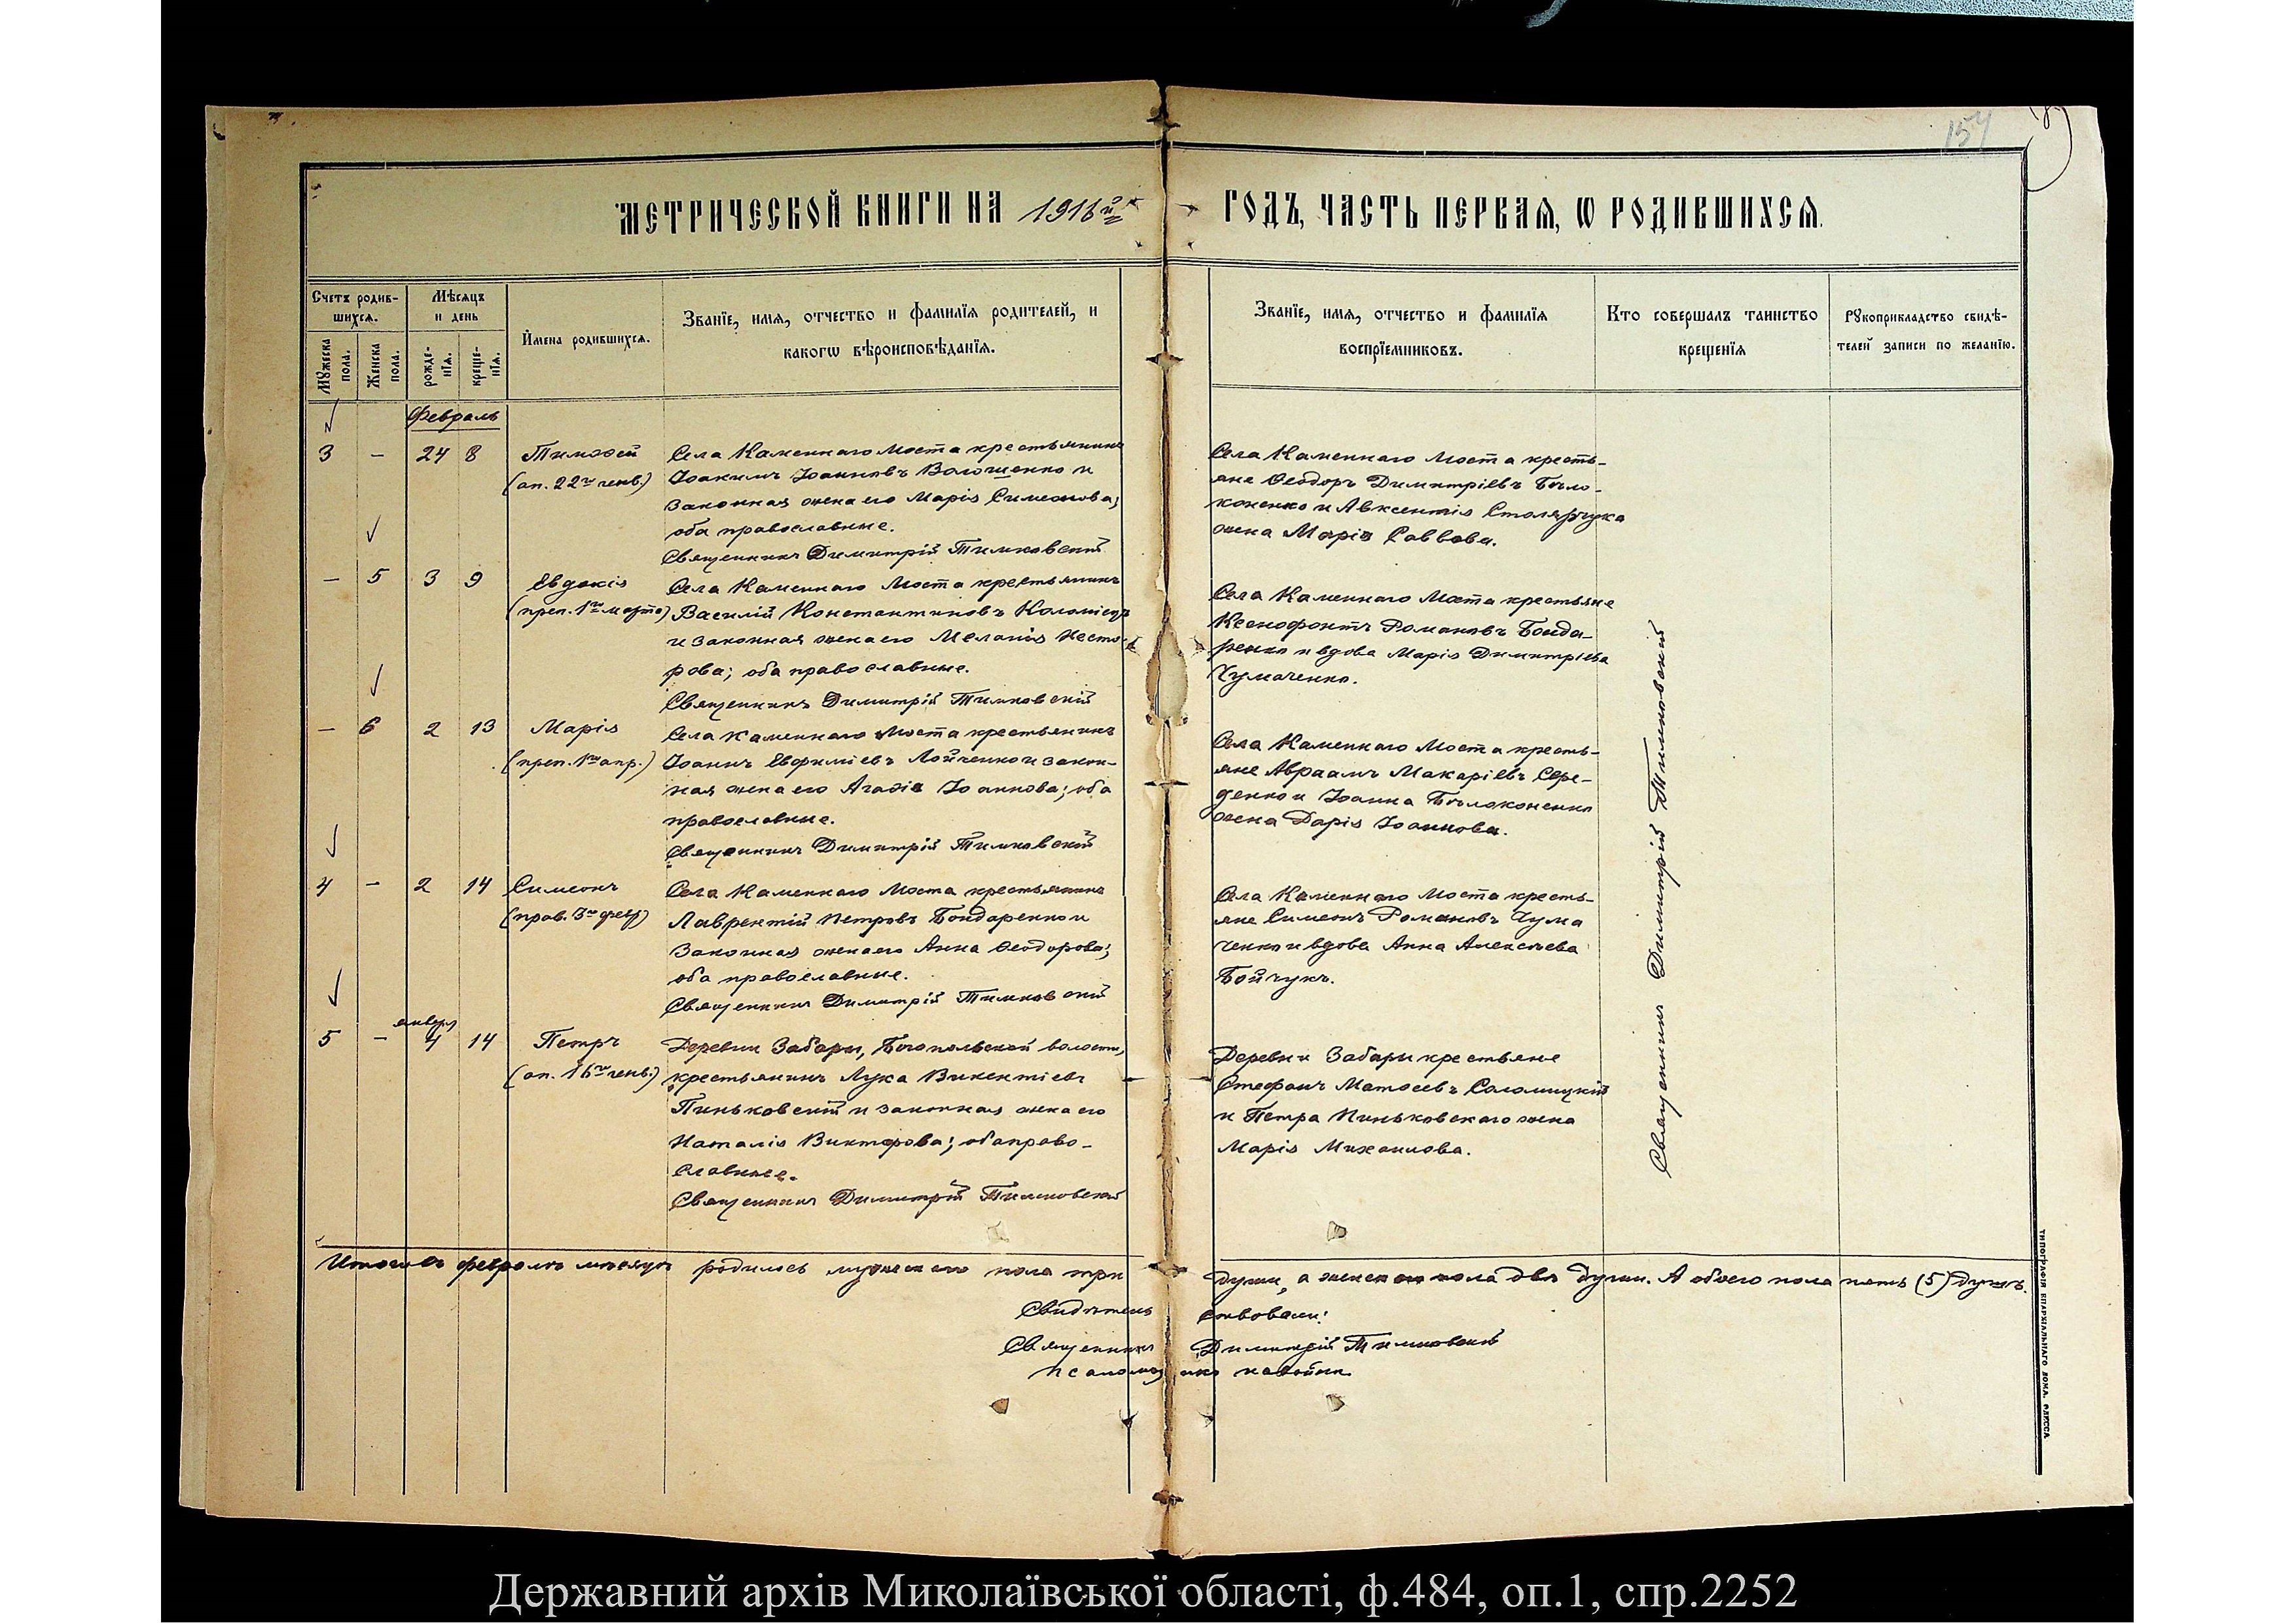 154
МЕТРИЧЕСКОЙ КНИГИ НА 1916й ГОДЪ, ЧАСТЬ ПЕРВАЯ, Ѡ РОДИВШИХСЯ.
Счетъ родив-
шихся.
Мѣсяцъ
и день
Имена родившихся.
Званїе, имя, отчество и фамилїя родителей, и
какогѡ вѣроисповѣданїя.
Званїе, имя, отчество и фамилїя
воспрїемниковъ.
Кто совершалъ таинство
крещенїя
Рукоприкладство свидѣ-
телей записи по желанїю.
Мужеска
пола.
Женска
пола.
рожде-
нїя.
креще-
нїя.
Февраль
3 - 24 8 Тимоѳей
(ап. 22го генв.)
Села Каменнаго Моста крестьянинъ
Іоакимъ Іоанновъ Волошенко и
законная жена его Марія Симеонова;
оба православные.
Священникъ Димитрій Тимковскій
Села Каменнаго Моста кресть-
яне Ѳеодоръ Димитріевъ Бѣло-
коненко и Авксентія Столярчука
жена Марія Саввова.
- 5 3 9 Евдокія
(преп. 1го марта)
Села Каменнаго Моста крестьянинъ
Василій Константиновъ Коломіецъ
и законная жена его Меланія Несто-
рова; оба православные.
Священникъ Димитрій Тимковскій
Села Каменнаго Моста крестьяне
Ксенофонтъ Романовъ Бонда-
ренко и вдова Марія Димитріева
Чумаченко.
- 6 2 13 Марія
(преп. 1го апр.)
Села Каменнаго Моста крестьянинъ
Іоаннъ Евфиміевъ Лойченко и закон-
ная жена его Агаѳія Іоаннова; оба
православные.
Священникъ Димитрій Тимковскій
Села Каменнаго Моста кресть-
яне Авраамъ Макаріевъ Сере-
денко и Іоанна Бѣлоконенко
жена Дарія Іоаннова.
4 - 2 14 Симеонъ
(прав. 3го февр)
Села Каменнаго Моста крестьянинъ
Лаврентій Петровъ Бондаренко и
законная жена его Анна Ѳеодорова;
оба православные.
Священникъ Димитрій Тимковскій
Села Каменнаго Моста кресть-
яне Симеонъ Романовъ Чума
ченко и вдова Анна Алексѣева
Бойчукъ.
январ
5 - 4 14 Петръ
(ап. 16го генв.)
Деревни Забары, Богопольской волости,
крестьянинъ Лука Викентіевъ
Пиньковскій и законная жена его
Наталія Викторова; оба право-
славные.
Священникъ Димитрій Тимковскій
Деревни Забары крестьяне
Стефанъ Матѳеевъ Саломицкій
и Петра Пиньковскаго жена
Марія Михаилова.
Священникъ Димитрій Тимковскій
Итого въ февралѣ мѣсяцѣ родилось мужескаго пола три души, а женскаго пола двѣ души. А обоего пола пять (5) душъ.
Свидѣтельствовали:
Священникъ Димитрій Тимковскій
Псаломщикъ
ТИПОГРАФІЯ ЕПАРХІАЛЬНАГО ДОМА. ОДЕССА
Державний архів Миколаївської області, ф.484, оп.1, спр.2252